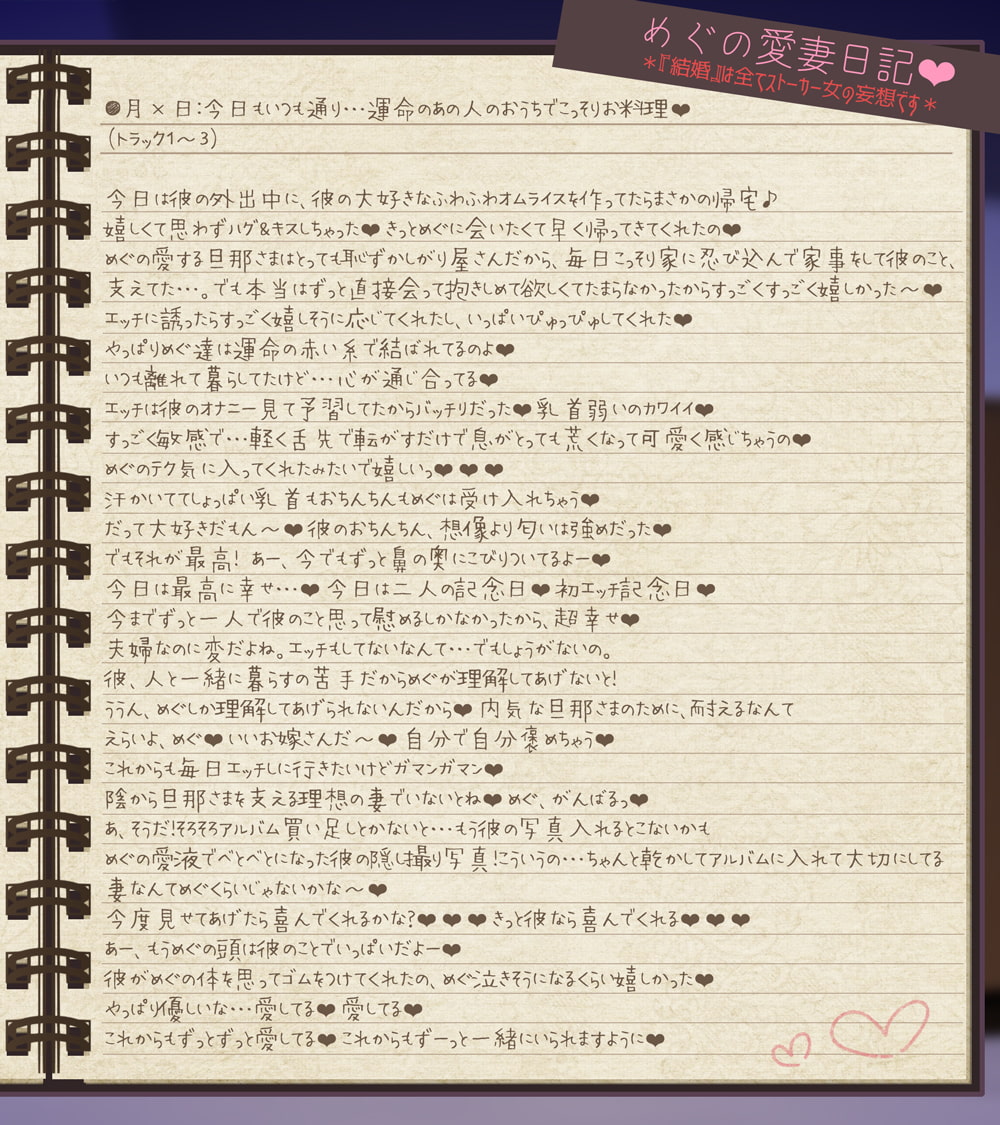 めぐの愛妻日記❤
＊『結婚』は全てストーカー女の妄想です＊
●月×日：今日もいつも通り…運命のあの人のおうちでこっそりお料理❤
（トラック1～3）
今日は彼の外出中に、彼の大好きなふわふわオムライスを作ってたらまさかの帰宅♪
嬉しくて思わずハグ&キスしちゃった❤きっとめぐに会いたくて早く帰ってきてくれたの❤
めぐの愛する旦那さまはとっても恥ずかしがり屋さんだから、毎日こっそり家に忍び込んで家事をして彼のこと、
支えてた…。でも本当はずっと直接会って抱きしめて欲しくてたまらなかったからすっごくすっごく嬉しかった～❤
エッチに誘ったらすっごく嬉しそうに応じてくれたし、いっぱいぴゅっぴゅしてくれた❤
やっぱりめぐ達は運命の赤い糸で結ばれてるのよ❤
いつも離れて暮らしてたけど…心が通じ合ってる❤
エッチは彼のオナニー見て予習してたからバッチリだった❤乳首弱いのカワイイ❤
すっごく敏感で…軽く舌先で転がすだけで息がとっても荒くなって可愛く感じちゃうの❤
めぐのテク気に入ってくれたみたいで嬉しいっ❤❤❤
汗かいててしょっぱい乳首もおちんちんもめぐは受け入れちゃう❤
だって大好きだもん～❤彼のおちんちん、想像より匂いは強めだった❤
でもそれが最高！あー、今でもずっと鼻の奥にこびりついてるよー❤
今日は最高に幸せ…❤今日は二人の記念日❤初エッチ記念日❤
今までずっと一人で彼のこと思って慰めるしかなかったから、超幸せ❤
夫婦なのに変だよね。エッチもしてないなんて…でもしょうがないの。
彼、人と一緒に暮らすの苦手だからめぐが理解してあげないと！
ううん、めぐしか理解してあげられないんだから❤内気な旦那さまのために、耐えるなんて
えらいよ、めぐ❤いいお嫁さんだ～❤自分で自分褒めちゃう❤
これからも毎日エッチしに行きたいけどガマンガマン❤
陰から旦那さまを支える理想の妻でいないとね❤めぐ、がんばるっ❤
あ、そうだ！そろそろアルバム買い足しとかないと…もう彼の写真入れるとこないかも
めぐの愛液でべとべとになった彼の隠し撮り写真！こういうの…ちゃんと乾かしてアルバムに入れて大切にしてる
妻なんてめぐくらいじゃないかな～❤
今度見せてあげたら喜んでくれるかな？❤❤❤きっと彼なら喜んでくれる❤❤❤
あー、もうめぐの頭は彼のことでいっぱいだよー❤
彼がめぐの体を思ってゴムをつけてくれたの、めぐ泣きそうになるくらい嬉しかった❤
やっぱり優しいな…愛してる❤愛してる❤
これからもずっとずっと愛してる❤これからもずーっと一緒にいられますように❤